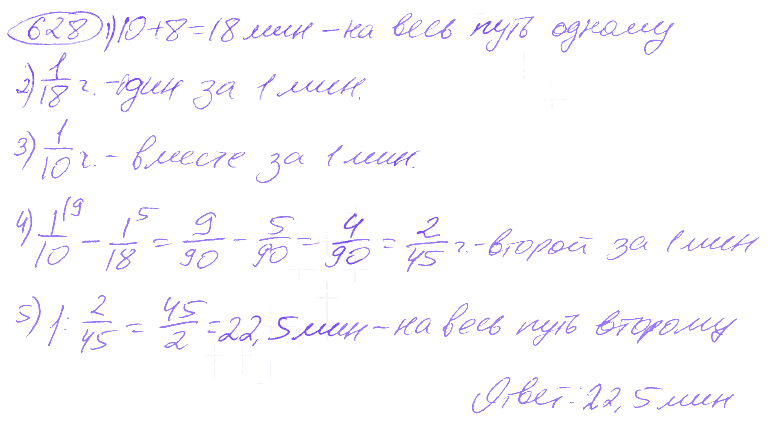 628 1) 10+8=18 мин – на весь путь одному
2) 1/18 ч. – один за 1 мин.
3) 1/10 ч. – вместе за 1 мин.
4) 1/10 |9 – 1/18 |5 = 9/90 – 5/90 = 4/90 = 2/45 ч. – второй за 1 мин
5) 1 : 2/45 = 45/2 = 22,5 мин – на весь путь второму
Ответ: 22,5 мин